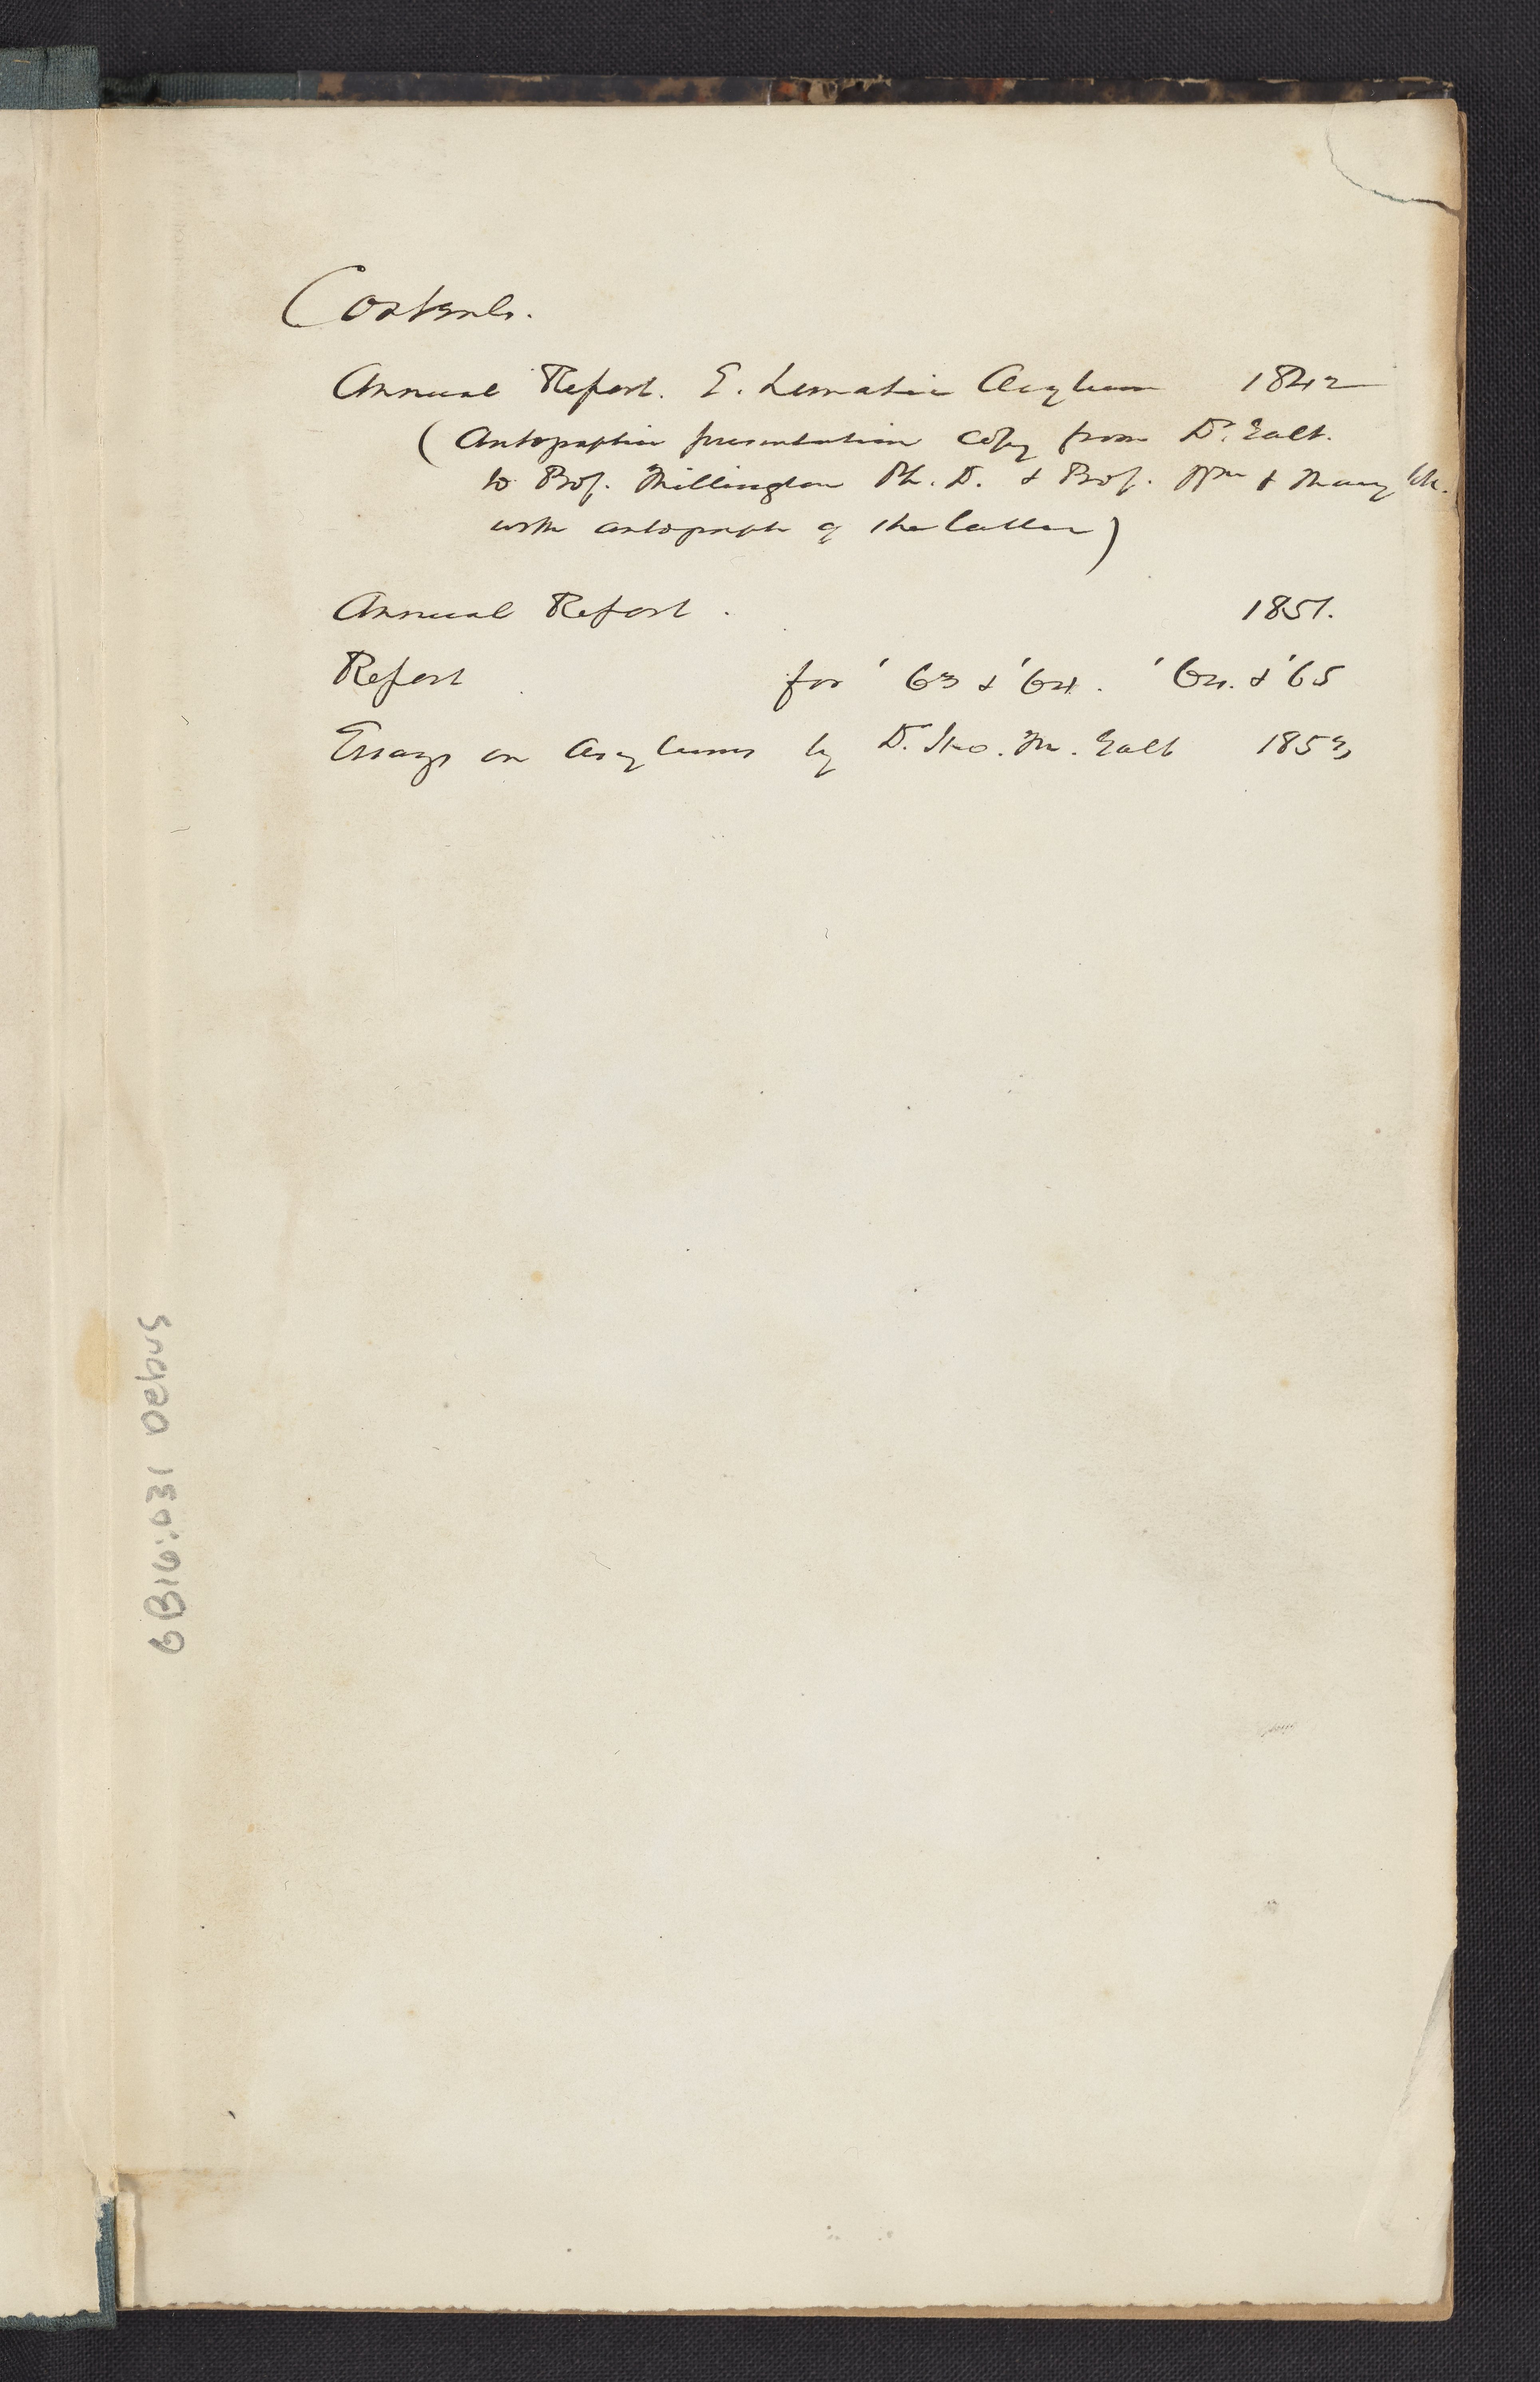 Contents.
Annual Report. E. Lunatic Asylum 1842
(Autographic presentation copy from Dr. Galt.
to Prof. Millington Ph. D. & Prof. Wm & Mary
with autograph of the latter)
Annual Report. 1851.
Report for '63 & '64. '64. & '65
Essays on Asylums by Dr. Jno. M. Galt 1853
6B16:031 Debus